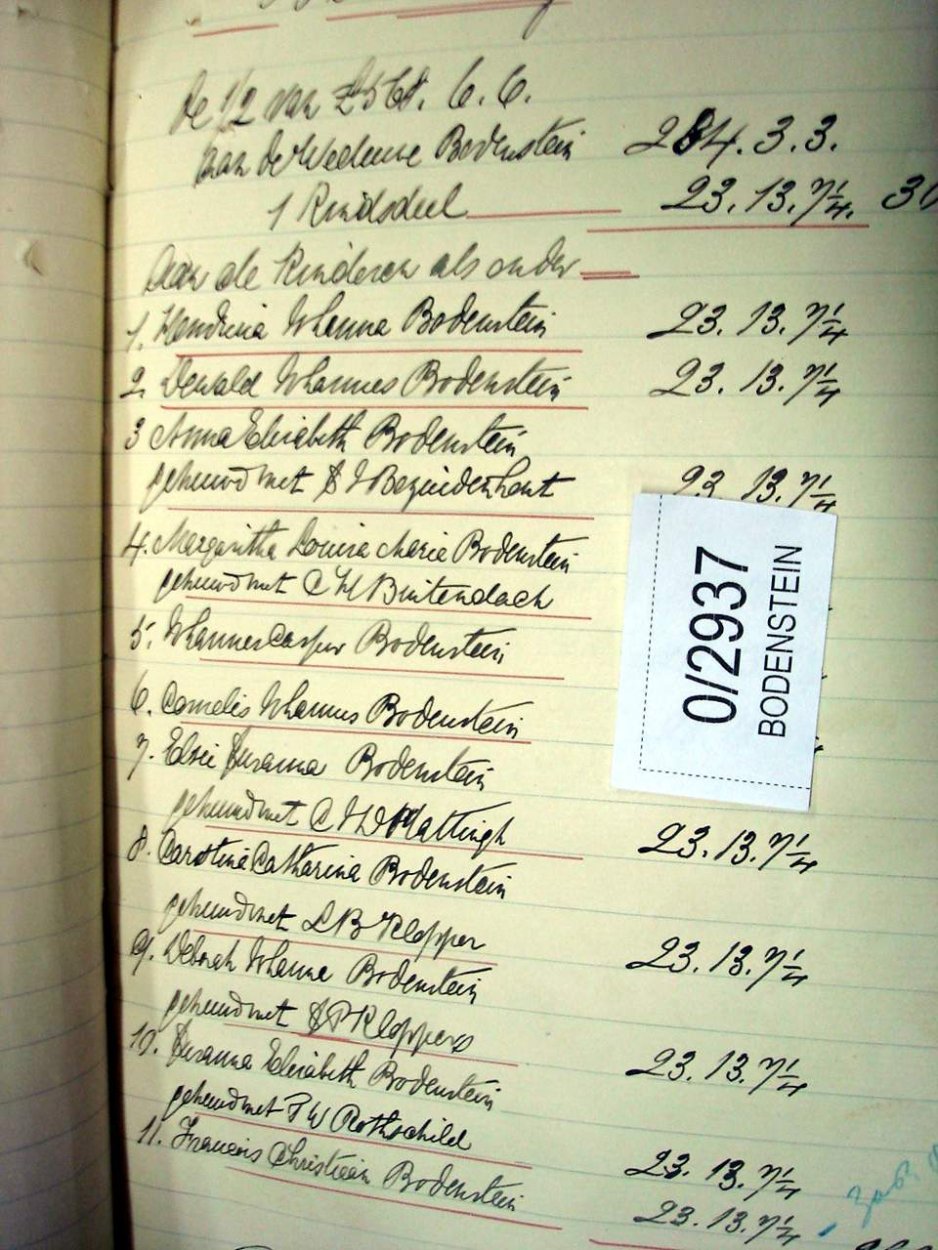 De 1/2 van £568. 6. 6.
aan de Weduwe Bodenstein 284. 3. 3.
1 Kindsdeel 23. 13. 7 1/4. 30
Aan de Kinderen als onder
1. Hendrina Johanna Bodenstein 23. 13. 7 1/4
2. Dewald Johannes Bodenstein 23. 13. 7 1/4
3 Anna Elisabeth Bodenstein
gehuwd met Bezuidenhout 23 13. 7 1/4
4. Margaritha Louisa Maria Bodenstein
gehuwd met C H Buitendach
5. Johannes Casper Bodenstein
6. Cornelis Johannes Bodenstein
7. Elsie Susanna Bodenstein
gehuwd met C J W Hattingh 23. 13. 7 1/4
8. Carolina Catharina Bodenstein
gehuwd met L B Klopper 23. 13. 7 1/4
9. Deborah Johanna Bodenstein
gehuwd met S P Kloppers 23. 13. 7 1/4
10. Susanna Elisabeth Bodenstein
gehuwd met P W Rothschild 23. 13. 7 1/4
11. Francois Christiaan Bodenstein 23. 13. 7 1/4
0/2937
BODENSTEIN